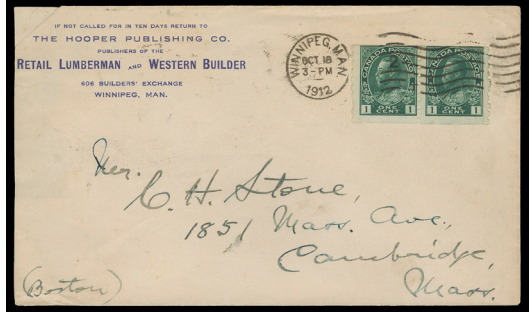 IF NOT CALLED FOR IN TEN DAYS RETURN TO
THE HOOPER PUBLISHING CO.
PUBLISHERS OF THE
RETAIL LUMBERMAN AND WESTERN BUILDER
606 BUILDERS' EXCHANGE
WINNIPEG, MAN.
WINNIPEG, MAN.
OCT 18
3-PM
1912
CANADA POSTAGE
1 ONE CENT 1
CANADA POSTAGE
1 ONE CENT 1
Mr.
C. H. Stone,
1851 Mass. Ave.,
Cambridge,
Mass.
(Boston)